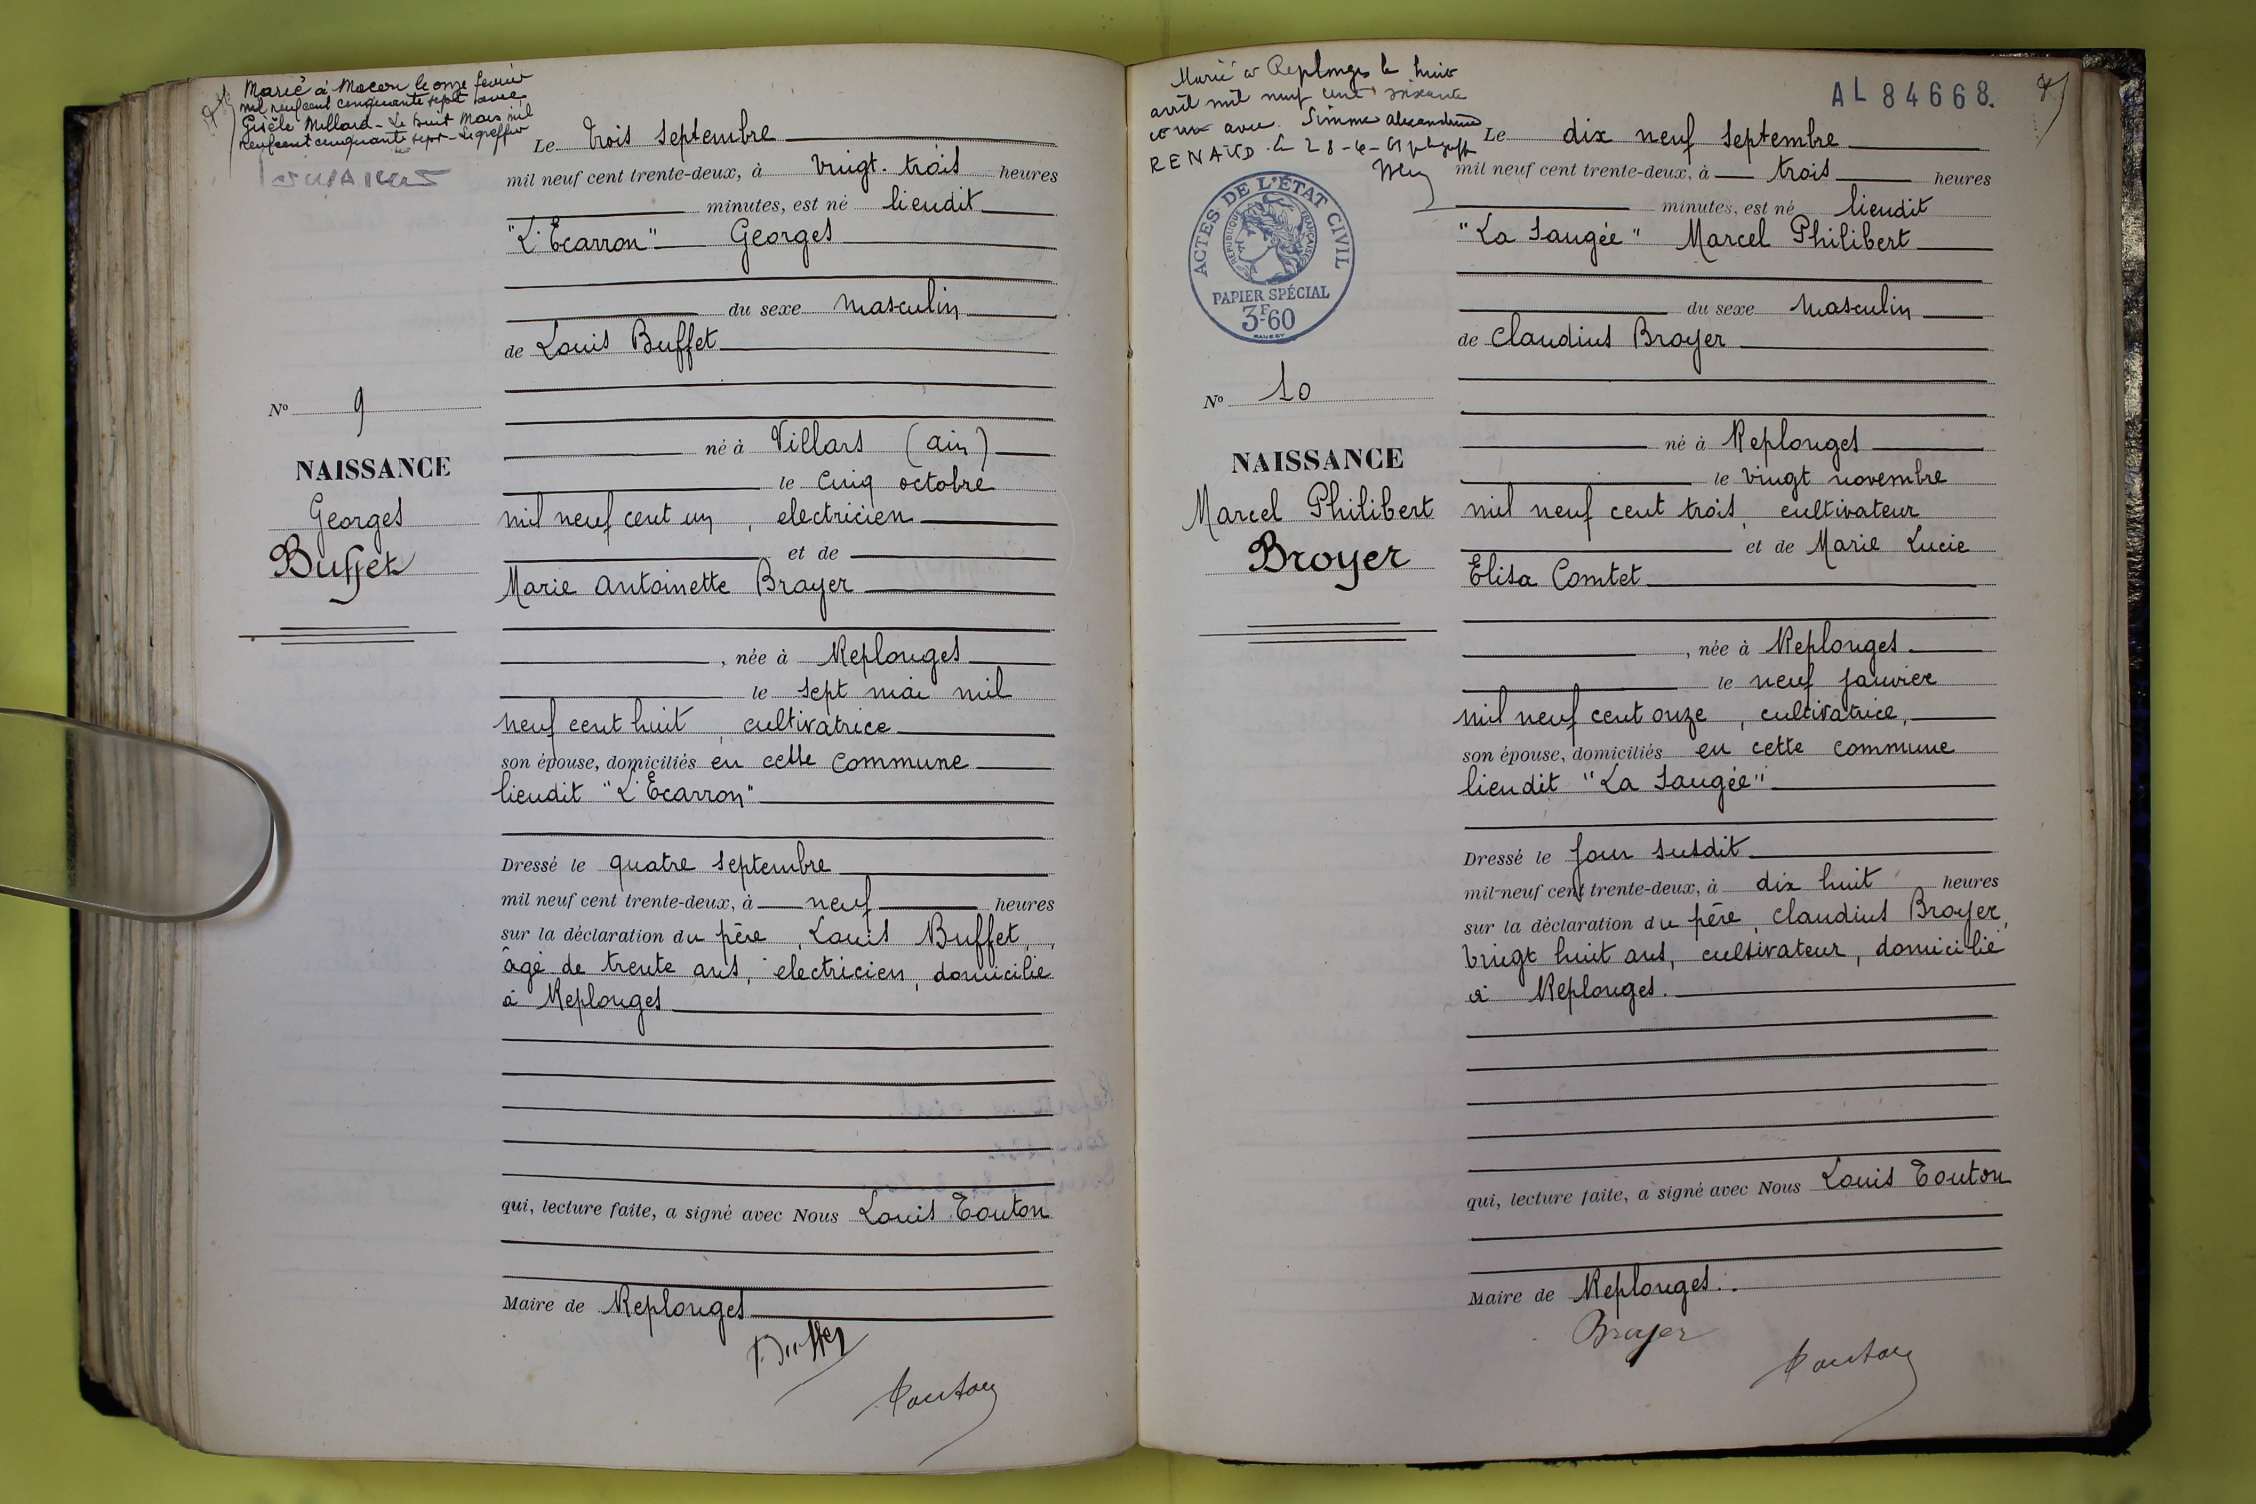 Marié à Macon le onze février
mil neuf cent cinquante sept avec
Gisèle Millard - Le huit Mars mil
neuf cent cinquante sept - Le greffier
Le trois septembre
mil neuf cent trente-deux, à vingt-trois heures
minutes, est né lieudit
"L'Ecarron" Georges
du sexe masculin
de Louis Buffet
né à Villars (ain)
le cinq octobre
mil neuf cent un, electricien
et de
Marie Antoinette Brayer
, née à Replonges
le sept mai mil
neuf cent huit, cultivatrice
son épouse, domiciliés en cette commune
lieudit "L'Ecarron"
Dressé le quatre septembre
mil neuf cent trente-deux, à neuf heures
sur la déclaration du père, Louis Buffet,
âgé de trente ans, electricien, domicilié
à Replonges
qui, lecture faite, a signé avec Nous Louis Touton
Maire de Replonges
Buffet
Touton
N° 9
NAISSANCE
Georges
Buffet
Marié à Replonges le huit
avril mil neuf cent soixante
et un avec Simone Alexandrine
RENAUD
AL 84668.
ACTES DE L'ÉTAT CIVIL
RÉPUBLIQUE FRANÇAISE
PAPIER SPÉCIAL
3F.60
N° 10
NAISSANCE
Marcel Philibert
Broyer
Le dix neuf septembre
mil neuf cent trente-deux, à trois heures
minutes, est né lieudit
"La Saugée" Marcel Philibert
du sexe masculin
de Claudius Broyer
né à Replonges
le vingt novembre
mil neuf cent trois, cultivateur
et de Marie Lucie
Elisa Comtet
, née à Replonges
le neuf janvier
mil neuf cent onze, cultivatrice,
son épouse, domiciliés en cette commune
lieudit "La Saugée"
Dressé le jour susdit
mil neuf cent trente-deux, à dix huit heures
sur la déclaration du père, Claudius Broyer,
vingt huit ans, cultivateur, domicilié
à Replonges.
qui, lecture faite, a signé avec Nous Louis Touton
Maire de Replonges.
Broyer
Touton